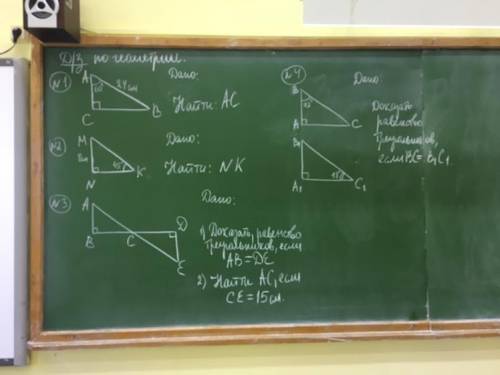 Д/з по геометрии.
№1
A
24 см
60°
C
B
Дано:
Найти: AC
№2
M
N
45°
K
Дано:
Найти: NK
№3
A
B
C
D
E
Дано:
1) Доказать равенство
треугольников, если
AB=DE
2) Найти AC, если
CE=15 см.
№4
B
A
C
B₁
A₁
45°
C₁
Дано:
Доказать
равенство
треугольников,
если BC=B₁C₁.